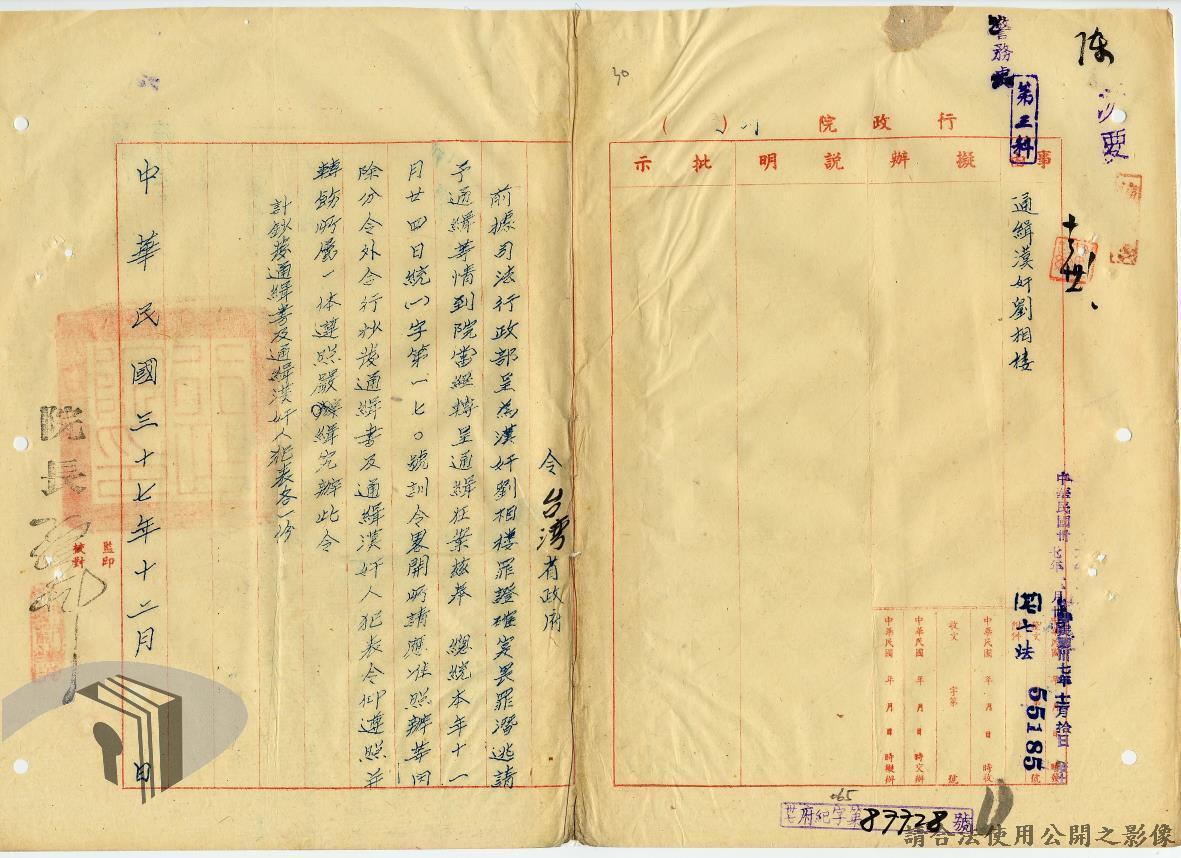 陳
警務處
第三科
30
行政院
事由 擬辦 說明 批示
通緝漢奸劉相樓
七法
55185
中華民國 年 月 日 時收
收文 字第 號
中華民國 年 月 日 時交辦
中華民國 年 月 日 時擬辦
附件
府紀字第87728號
令台灣省政府
前據司法行政部呈為漢奸劉相樓罪證確實畏罪潛逃請
予通緝等情到院當經轉呈通緝在案茲奉 總統本年十一
月廿四日統(一)字第一七〇號訓令畧開所請應准照辦等因
除分令外合行抄發通緝書及通緝漢奸人犯表令仰遵照並
轉飭所屬一体遵照嚴緝究辦此令
計鈔發通緝書及通緝漢奸人犯表各一份
中華民國三十七年十二月 日
院長
監印
校對
請合法使用公開之影像